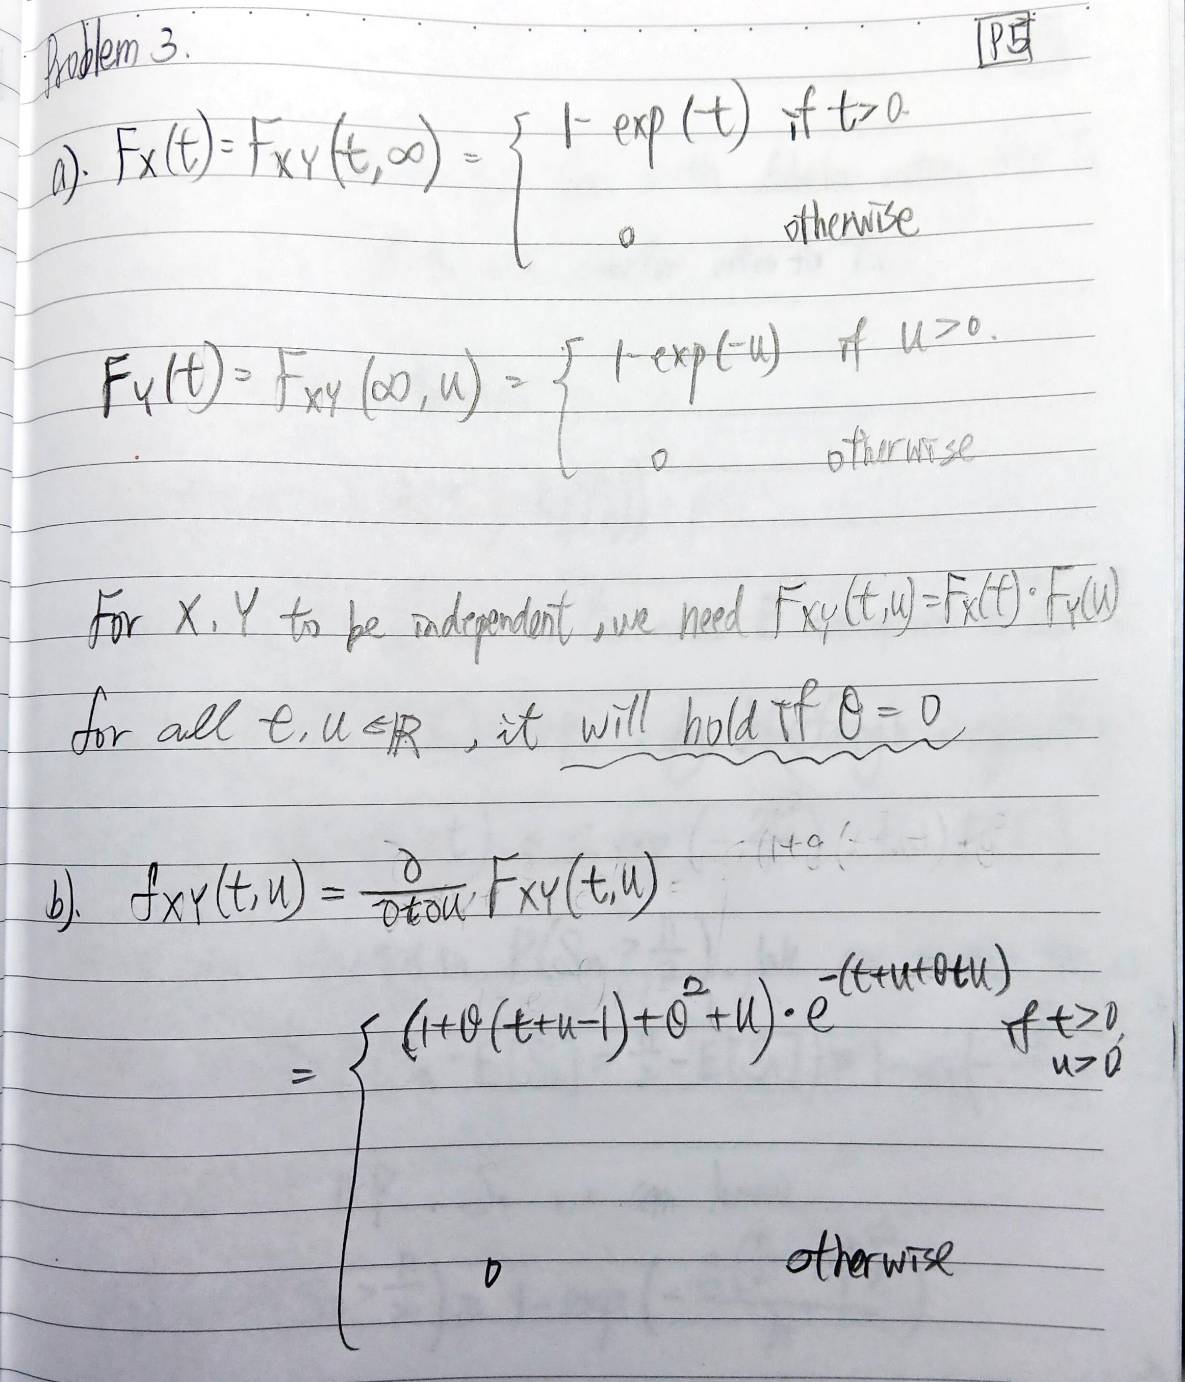 Problem 3.
P5
a). F_X(t) = F_XY(t, ∞) = { 1 - exp(-t) if t>0.
0 otherwise
F_Y(t) = F_XY(∞, u) = { 1 - exp(-u) if u>0.
0 otherwise
For X, Y to be independent, we need F_XY(t,u) = F_X(t) · F_Y(u)
for all t, u ∈ ℝ, it will hold if θ = 0
b). f_XY(t, u) = ∂/∂t∂u F_XY(t, u)
= { (1+θ(t+u-1)+θ²+u) · e^-(t+u+θtu) if t>0,
u>0
0 otherwise